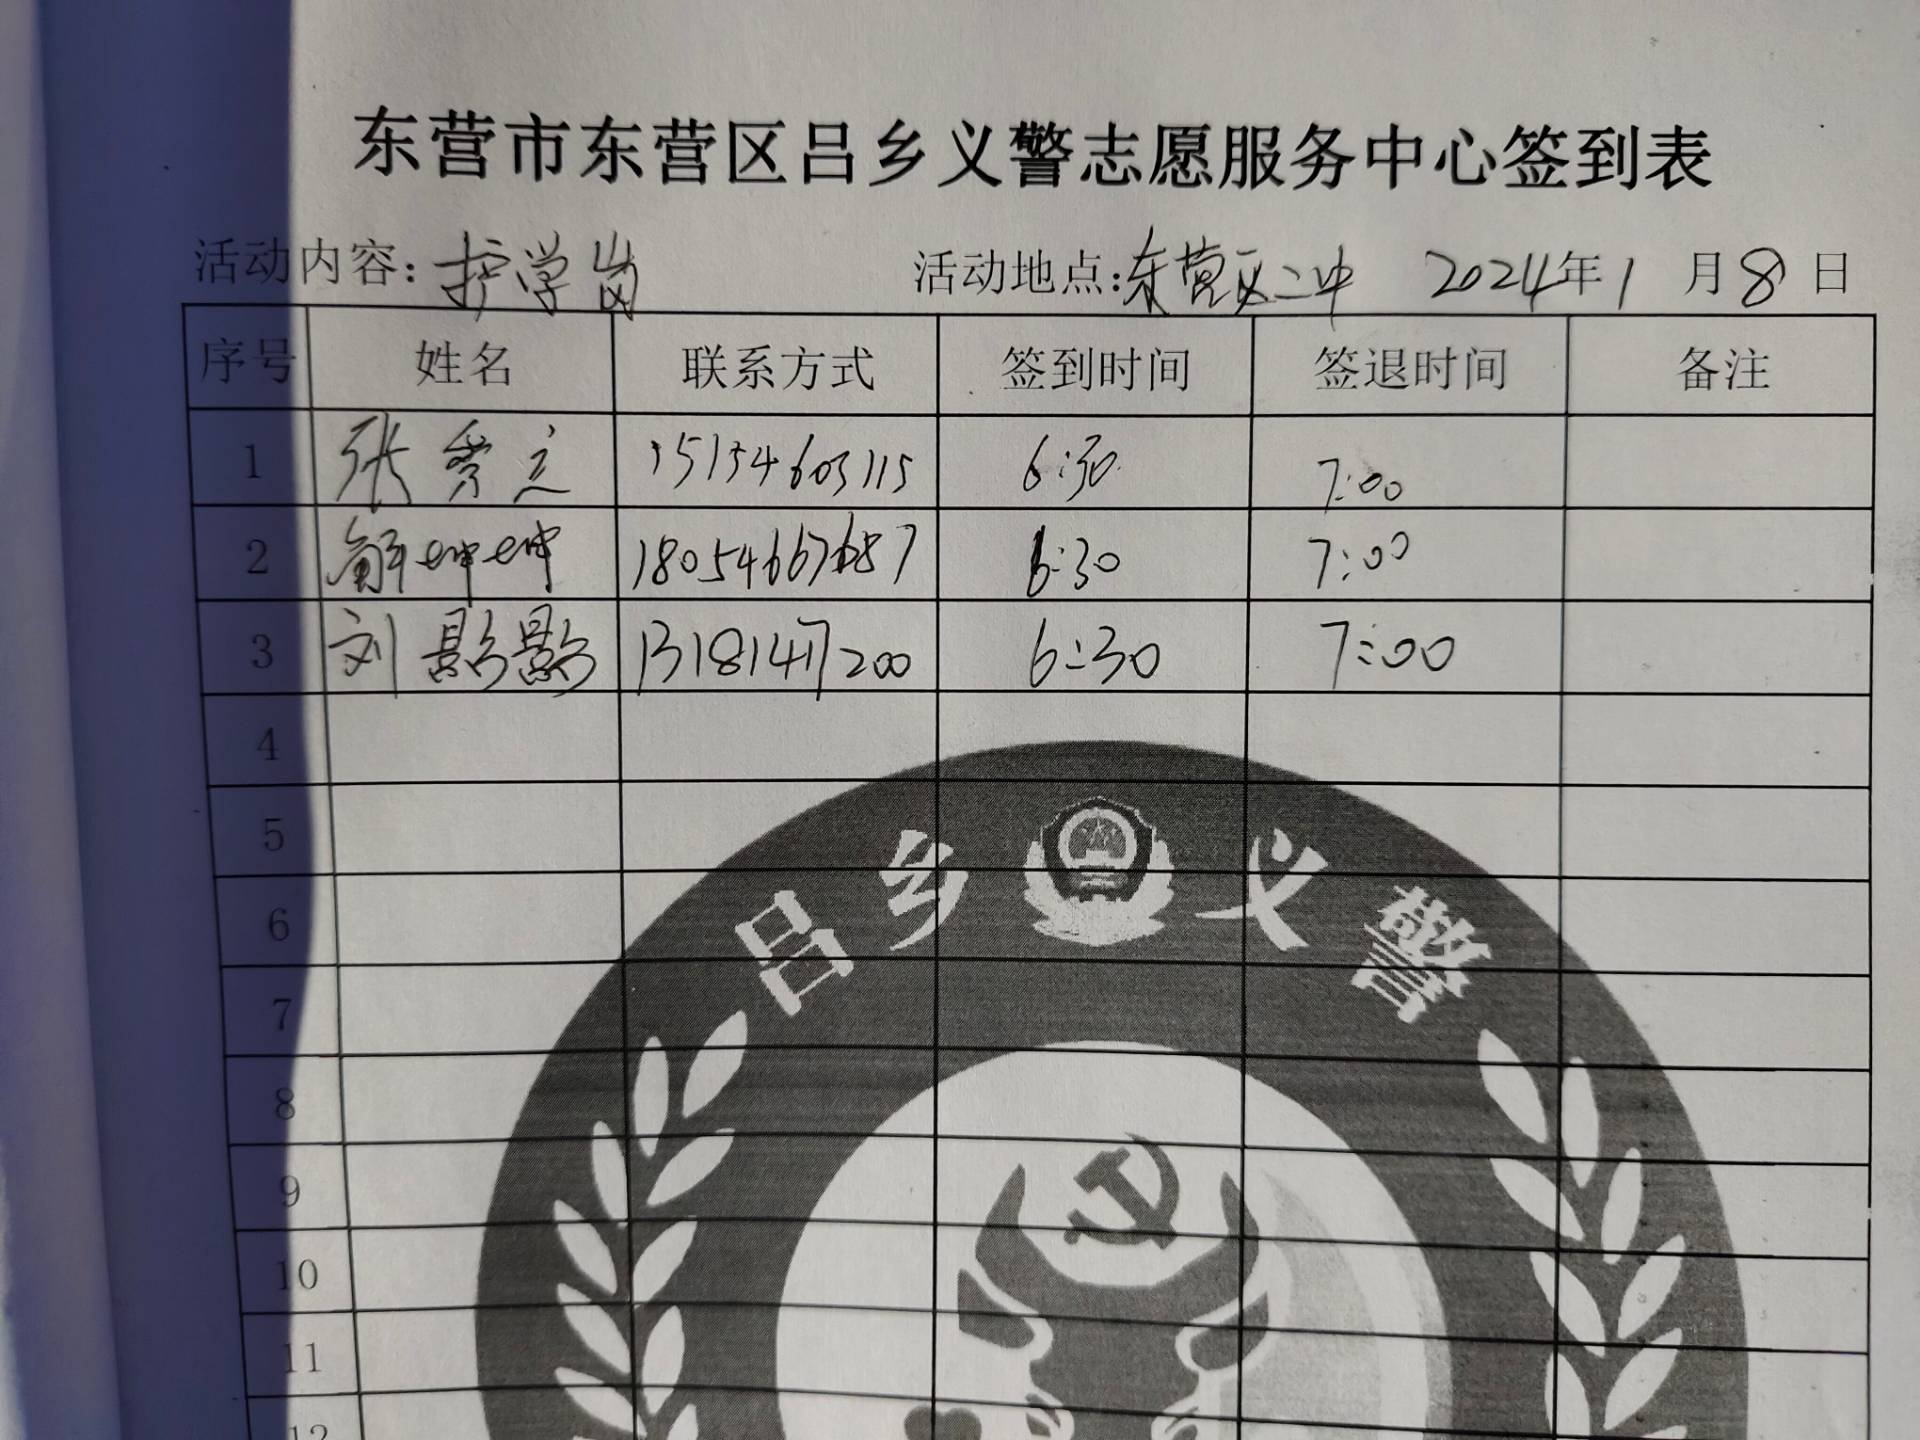 东营市东营区吕乡义警志愿服务中心签到表
活动内容：护学岗 活动地点：东营区二中 2024年1月8日
序号 姓名 联系方式 签到时间 签退时间 备注
1 张 15154603115 6:30 7:00
2 解坤坤 18054667687 6:30 7:00
3 刘影影 13181417200 6:30 7:00
4
5
6
7
8
9
10
11
12
吕乡义警